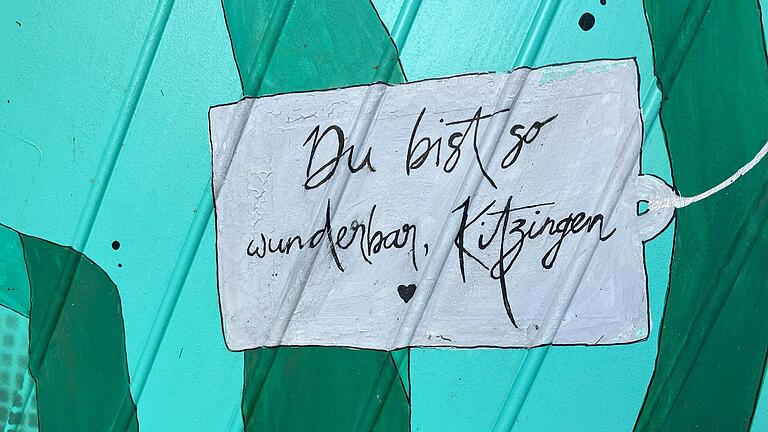 Du bist so
wunderbar, Kitzingen